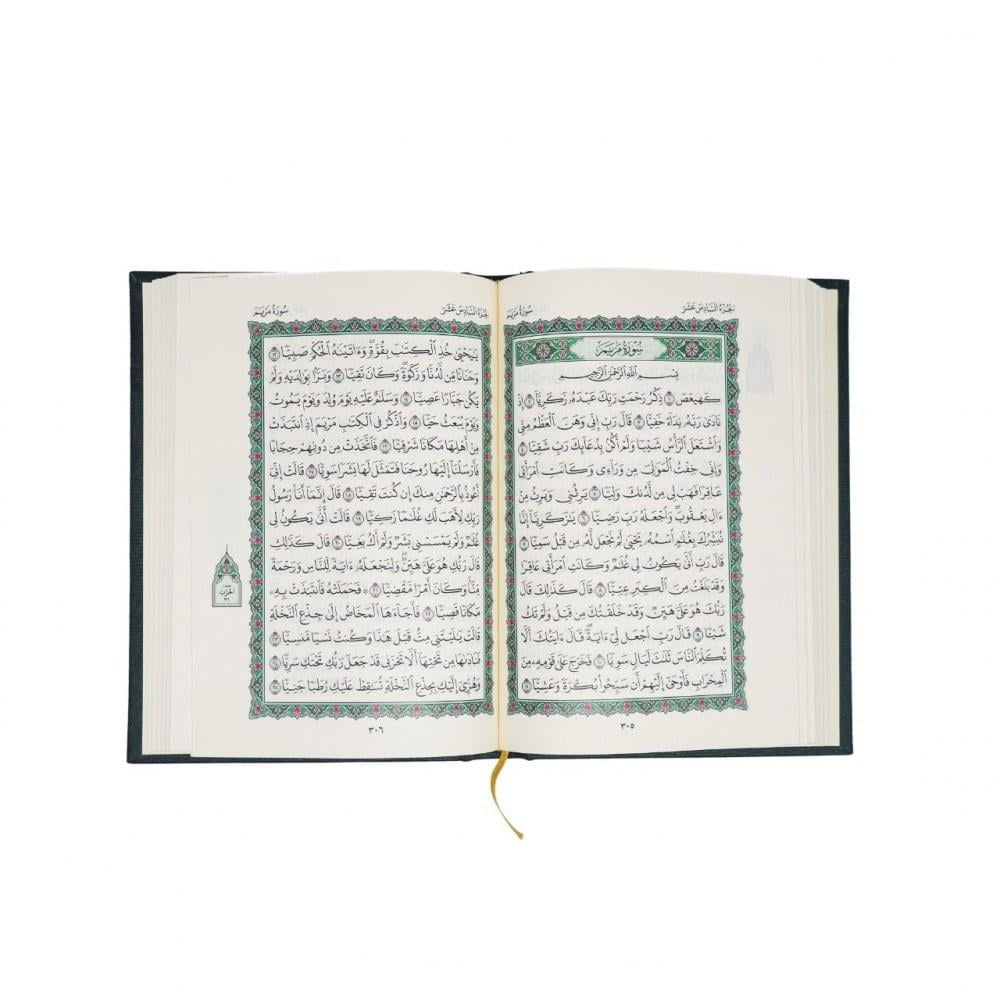 سُورَةُ مَرۡيَمَ
الجُزۡءُ السَّادِسَ عَشَرَ
سُورَةُ مَرۡيَمَ
بِسۡمِ ٱللَّهِ ٱلرَّحۡمَٰنِ ٱلرَّحِيمِ
كٓهيعٓصٓ ١ ذِكۡرُ رَحۡمَتِ رَبِّكَ عَبۡدَهُۥ زَكَرِيَّآ ٢ إِذۡ
نَادَىٰ رَبَّهُۥ نِدَآءً خَفِيّٗا ٣ قَالَ رَبِّ إِنِّي وَهَنَ ٱلۡعَظۡمُ مِنِّي
وَٱشۡتَعَلَ ٱلرَّأۡسُ شَيۡبٗا وَلَمۡ أَكُنۢ بِدُعَآئِكَ رَبِّ شَقِيّٗا ٤
وَإِنِّي خِفۡتُ ٱلۡمَوَٰلِيَ مِن وَرَآءِي وَكَانَتِ ٱمۡرَأَتِي
عَاقِرٗا فَهَبۡ لِي مِن لَّدُنكَ وَلِيّٗا ٥ يَرِثُنِي وَيَرِثُ مِنۡ
ءَالِ يَعۡقُوبَۖ وَٱجۡعَلۡهُ رَبِّ رَضِيّٗا ٦ يَٰزَكَرِيَّآ إِنَّا
نُبَشِّرُكَ بِغُلَٰمٍ ٱسۡمُهُۥ يَحۡيَىٰ لَمۡ نَجۡعَل لَّهُۥ مِن قَبۡلُ سَمِيّٗا ٧
قَالَ رَبِّ أَنَّىٰ يَكُونُ لِي غُلَٰمٞ وَكَانَتِ ٱمۡرَأَتِي عَاقِرٗا
وَقَدۡ بَلَغۡتُ مِنَ ٱلۡكِبَرِ عِتِيّٗا ٨ قَالَ كَذَٰلِكَ قَالَ
رَبُّكَ هُوَ عَلَيَّ هَيِّنٞ وَقَدۡ خَلَقۡتُكَ مِن قَبۡلُ وَلَمۡ تَكُ
شَيۡـٔٗا ٩ قَالَ رَبِّ ٱجۡعَل لِّيٓ ءَايَةٗۖ قَالَ ءَايَتُكَ أَلَّا
تُكَلِّمَ ٱلنَّاسَ ثَلَٰثَ لَيَالٖ سَوِيّٗا ١٠ فَخَرَجَ عَلَىٰ قَوۡمِهِۦ مِنَ
ٱلۡمِحۡرَابِ فَأَوۡحَىٰٓ إِلَيۡهِمۡ أَن سَبِّحُواْ بُكۡرَةٗ وَعَشِيّٗا ١١
٣٠٥
سُورَةُ مَرۡيَمَ
الجُزۡءُ السَّادِسَ عَشَرَ
يَٰيَحۡيَىٰ خُذِ ٱلۡكِتَٰبَ بِقُوَّةٖۖ وَءَاتَيۡنَٰهُ ٱلۡحُكۡمَ صَبِيّٗا ١٢
وَحَنَانٗا مِّن لَّدُنَّا وَزَكَوٰةٗۖ وَكَانَ تَقِيّٗا ١٣ وَبَرَّۢا بِوَٰلِدَيۡهِ وَلَمۡ
يَكُن جَبَّارًا عَصِيّٗا ١٤ وَسَلَٰمٌ عَلَيۡهِ يَوۡمَ وُلِدَ وَيَوۡمَ يَمُوتُ
وَيَوۡمَ يُبۡعَثُ حَيّٗا ١٥ وَٱذۡكُرۡ فِي ٱلۡكِتَٰبِ مَرۡيَمَ إِذِ ٱنتَبَذَتۡ
مِنۡ أَهۡلِهَا مَكَانٗا شَرۡقِيّٗا ١٦ فَٱتَّخَذَتۡ مِن دُونِهِمۡ حِجَابٗا
فَأَرۡسَلۡنَآ إِلَيۡهَا رُوحَنَا فَتَمَثَّلَ لَهَا بَشَرٗا سَوِيّٗا ١٧ قَالَتۡ إِنِّيٓ
أَعُوذُ بِٱلرَّحۡمَٰنِ مِنكَ إِن كُنتَ تَقِيّٗا ١٨ قَالَ إِنَّمَآ أَنَا۠ رَسُولُ
رَبِّكِ لِأَهَبَ لَكِ غُلَٰمٗا زَكِيّٗا ١٩ قَالَتۡ أَنَّىٰ يَكُونُ لِي
غُلَٰمٞ وَلَمۡ يَمۡسَسۡنِي بَشَرٞ وَلَمۡ أَكُ بَغِيّٗا ٢٠ قَالَ كَذَٰلِكِ
قَالَ رَبُّكِ هُوَ عَلَيَّ هَيِّنٞۖ وَلِنَجۡعَلَهُۥٓ ءَايَةٗ لِّلنَّاسِ وَرَحۡمَةٗ
مِّنَّاۚ وَكَانَ أَمۡرٗا مَّقۡضِيّٗا ٢١ ۞ فَحَمَلَتۡهُ فَٱنتَبَذَتۡ بِهِۦ
مَكَانٗا قَصِيّٗا ٢٢ فَأَجَآءَهَا ٱلۡمَخَاضُ إِلَىٰ جِذۡعِ ٱلنَّخۡلَةِ
قَالَتۡ يَٰلَيۡتَنِي مِتُّ قَبۡلَ هَٰذَا وَكُنتُ نَسۡيٗا مَّنسِيّٗا ٢٣
فَنَادَىٰهَا مِن تَحۡتِهَآ أَلَّا تَحۡزَنِي قَدۡ جَعَلَ رَبُّكِ تَحۡتَكِ سَرِيّٗا ٢٤
وَهُزِّيٓ إِلَيۡكِ بِجِذۡعِ ٱلنَّخۡلَةِ تُسَٰقِطۡ عَلَيۡكِ رُطَبٗا جَنِيّٗا ٢٥
الحِزۡب
٣١
٣٠٦